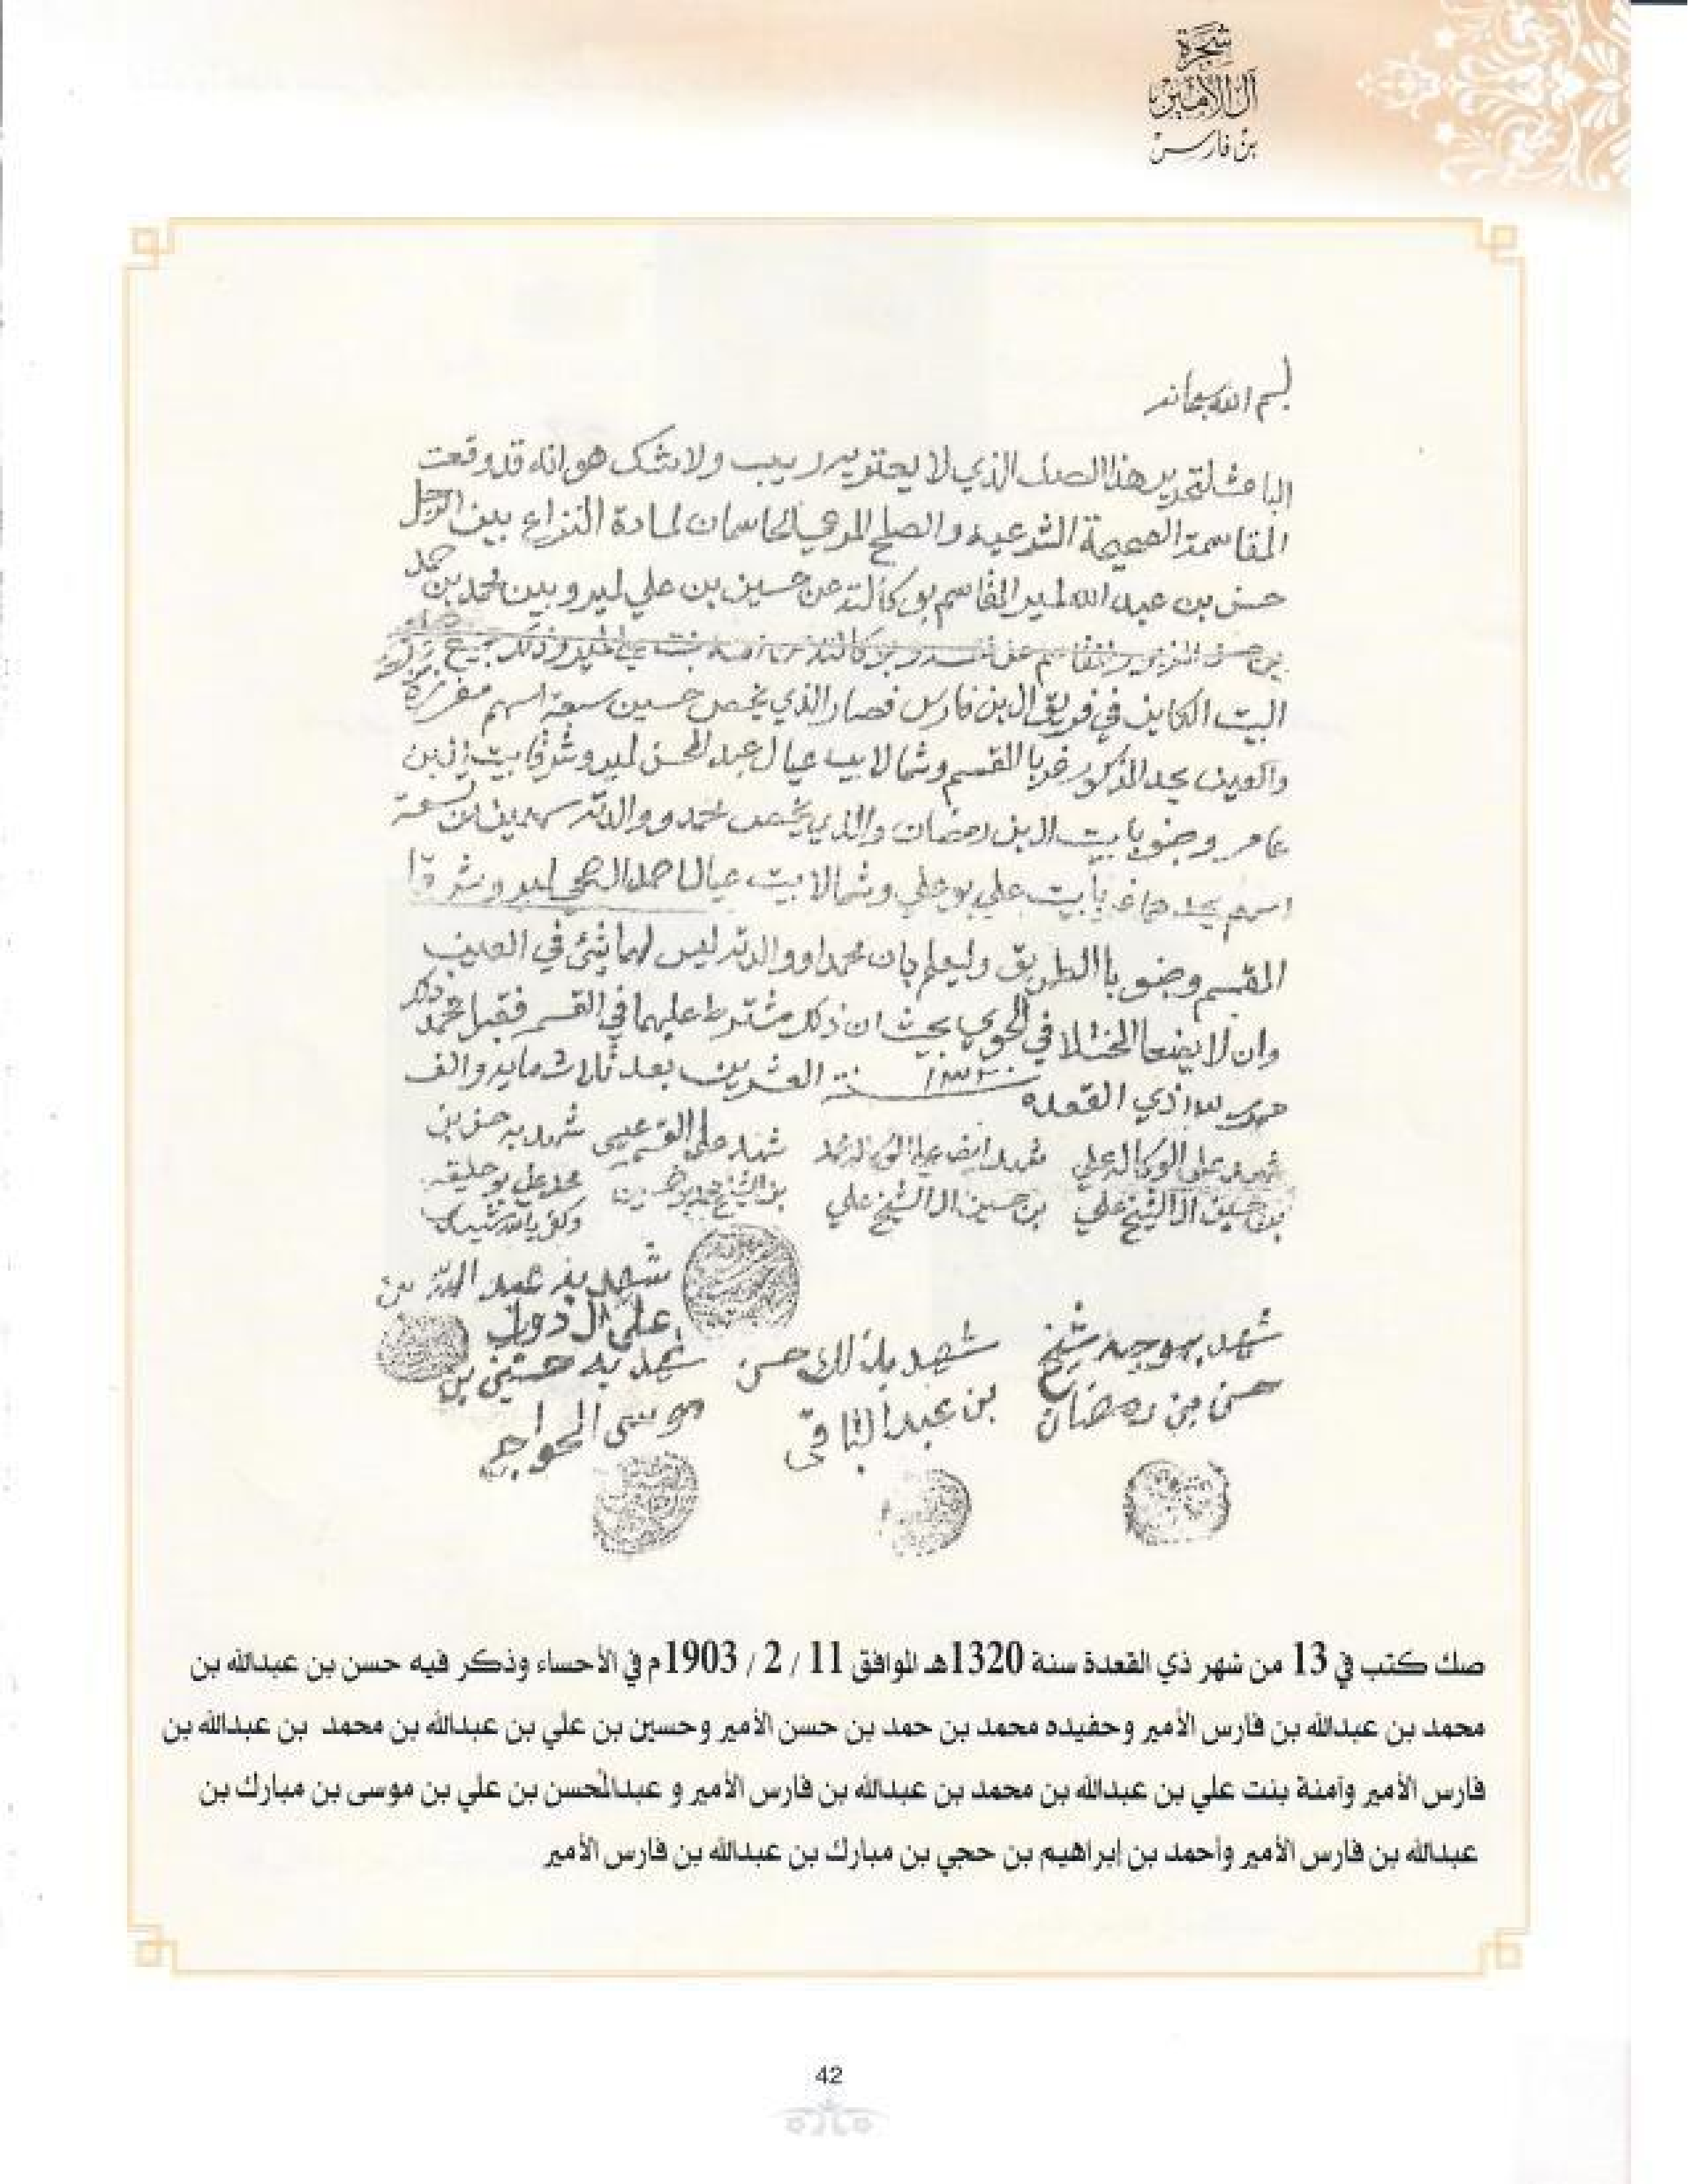 شجرة
آل الأمير
بن فارس
بسم الله سبحانه
الباعث لتحرير هذا الصك الذي لا يعتويه ريب ولا شك هو انه قد وقعت
المقاسمة الصحيحة الشرعيه والصلح المرعي الحاسمان لمادة النزاع بين الرجل
حسن بن عبد الله لمير المقاسم بوكالته عن حسين بن علي لمير وبين محمد بن حمد
بن حسن وذلك جميع
البيت الكاين في فريق ال بن فارس فصار الذي يخص حسين سبعة اسهم مفرزة
والعين يحد المذكور غربا القسم وشمالا بيت عيال عبد المحسن لمير وشرقا بيت بن
عامر وجنوبا بيت ال بن رمضان والذي يخص محمد ووالدته سهمين من تسعة
اسهم يحدهما غربا بيت علي بو علي وشمالا بيت عيال احمد الحجي لمير وشرقا
القسم وجنوبا الطريق وليعلم بان محمدا ووالدته ليس لهما شئ في العين
وان لا يضعا الختلا في الحوي بحيث ان ذلك مشترط عليهما في القسم فقبل محمد ذلك
ذي القعده ١٣٢٠ سنة العشرين بعد ثلاث مايه والف
شهد على الوكاله علي شهد ايضا على الوكاله شهد على القسم عيسى شهد به حسن بن
بن حسين ال الشيخ علي بن حسين ال الشيخ علي بن الشيخ محمد علي بو حليقه
وكفى بالله شهيدا
شهد به عبد الله بن
علي ال
شهد بموجبه شيخ شهد بذلك حسن شهد به حسين بن
حسن بن رمضان بن عبد الباقي موسى الحواج
صك كتب في 13 من شهر ذي القعدة سنة 1320هـ الموافق 11 / 2 / 1903م في الأحساء وذكر فيه حسن بن عبدالله بن
محمد بن عبدالله بن فارس الأمير وحفيده محمد بن حمد بن حسن الأمير وحسين بن علي بن عبدالله بن محمد بن عبدالله بن
فارس الأمير وآمنة بنت علي بن عبدالله بن محمد بن عبدالله بن فارس الأمير و عبدالمحسن بن علي بن موسى بن مبارك بن
عبدالله بن فارس الأمير وأحمد بن إبراهيم بن حجي بن مبارك بن عبدالله بن فارس الأمير
42